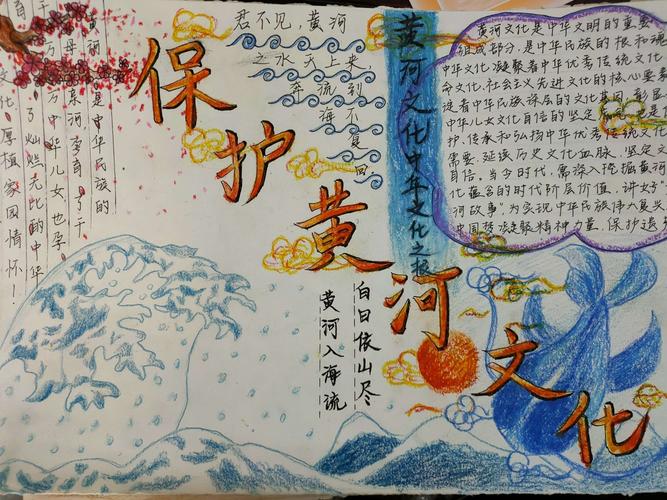 保护黄河文化
黄河是中华民族的
母河孕育了千
万中华儿女也孕
育了灿烂无比的中华
文化,厚植家国情怀!
君不见,黄河
之水天上来,
奔流到
海不
复
回
黄河文化中华文化之
黄河文化是中华文明的重要
组成部分,是中华民族的根和魂
中华文化凝聚着中华优秀传统文化
命文化、社会主义先进文化的核心要素
淀着中华民族的文化基因,彰显
中华儿女文化自信的坚定是
护、传承和弘扬中华优秀传统文化
需要,延续历史文化血脉,坚定文
自信。当今时代,需深入挖掘黄河
化蕴含的时代阶层价值,讲好
河故事"为实现中华民族伟大复兴
中国梦凝聚精神力量,保护遗
白日依山尽
黄河入海流